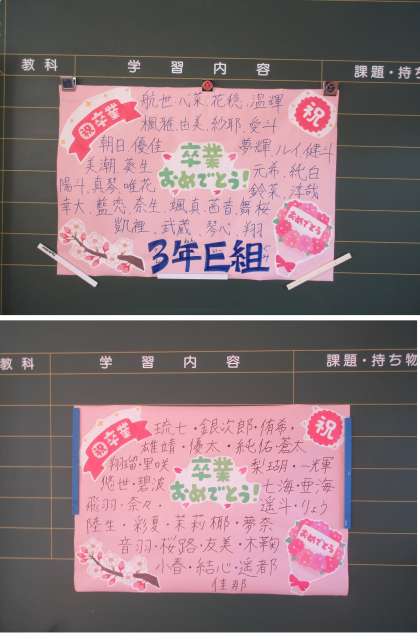 教科 学習内容 課題・持ち
祝卒業 祝
航世、八菜、花穂、温輝
楓雅、由美、紗耶、愛斗
朝日、優佳 夢輝、ルイ、健斗
美潮、葵生 元希、純白
陽斗、真琴、唯花 鈴茉、洋哉
卒業
おめでとう!
幸大、藍恋、奈生、颯真、茜音、舞桜
凱裡、武蔵、琴心、翔
おめでとう
3年E組
教科 学習内容 課題・持ち物
祝卒業 祝
琉七・銀次郎・侑希・
雄靖・優太・純佑・蒼太
翔瑠・里咲 梨瑚・一輝
悠世・碧波 七海・亜海
飛羽・奈々・ 遥斗・りょう
卒業
おめでとう!
陸生・彩夏・茉莉椰・夢奈
音羽・桜路・友美・木鞠
おめでとう
小春・結心・遥都
佳那